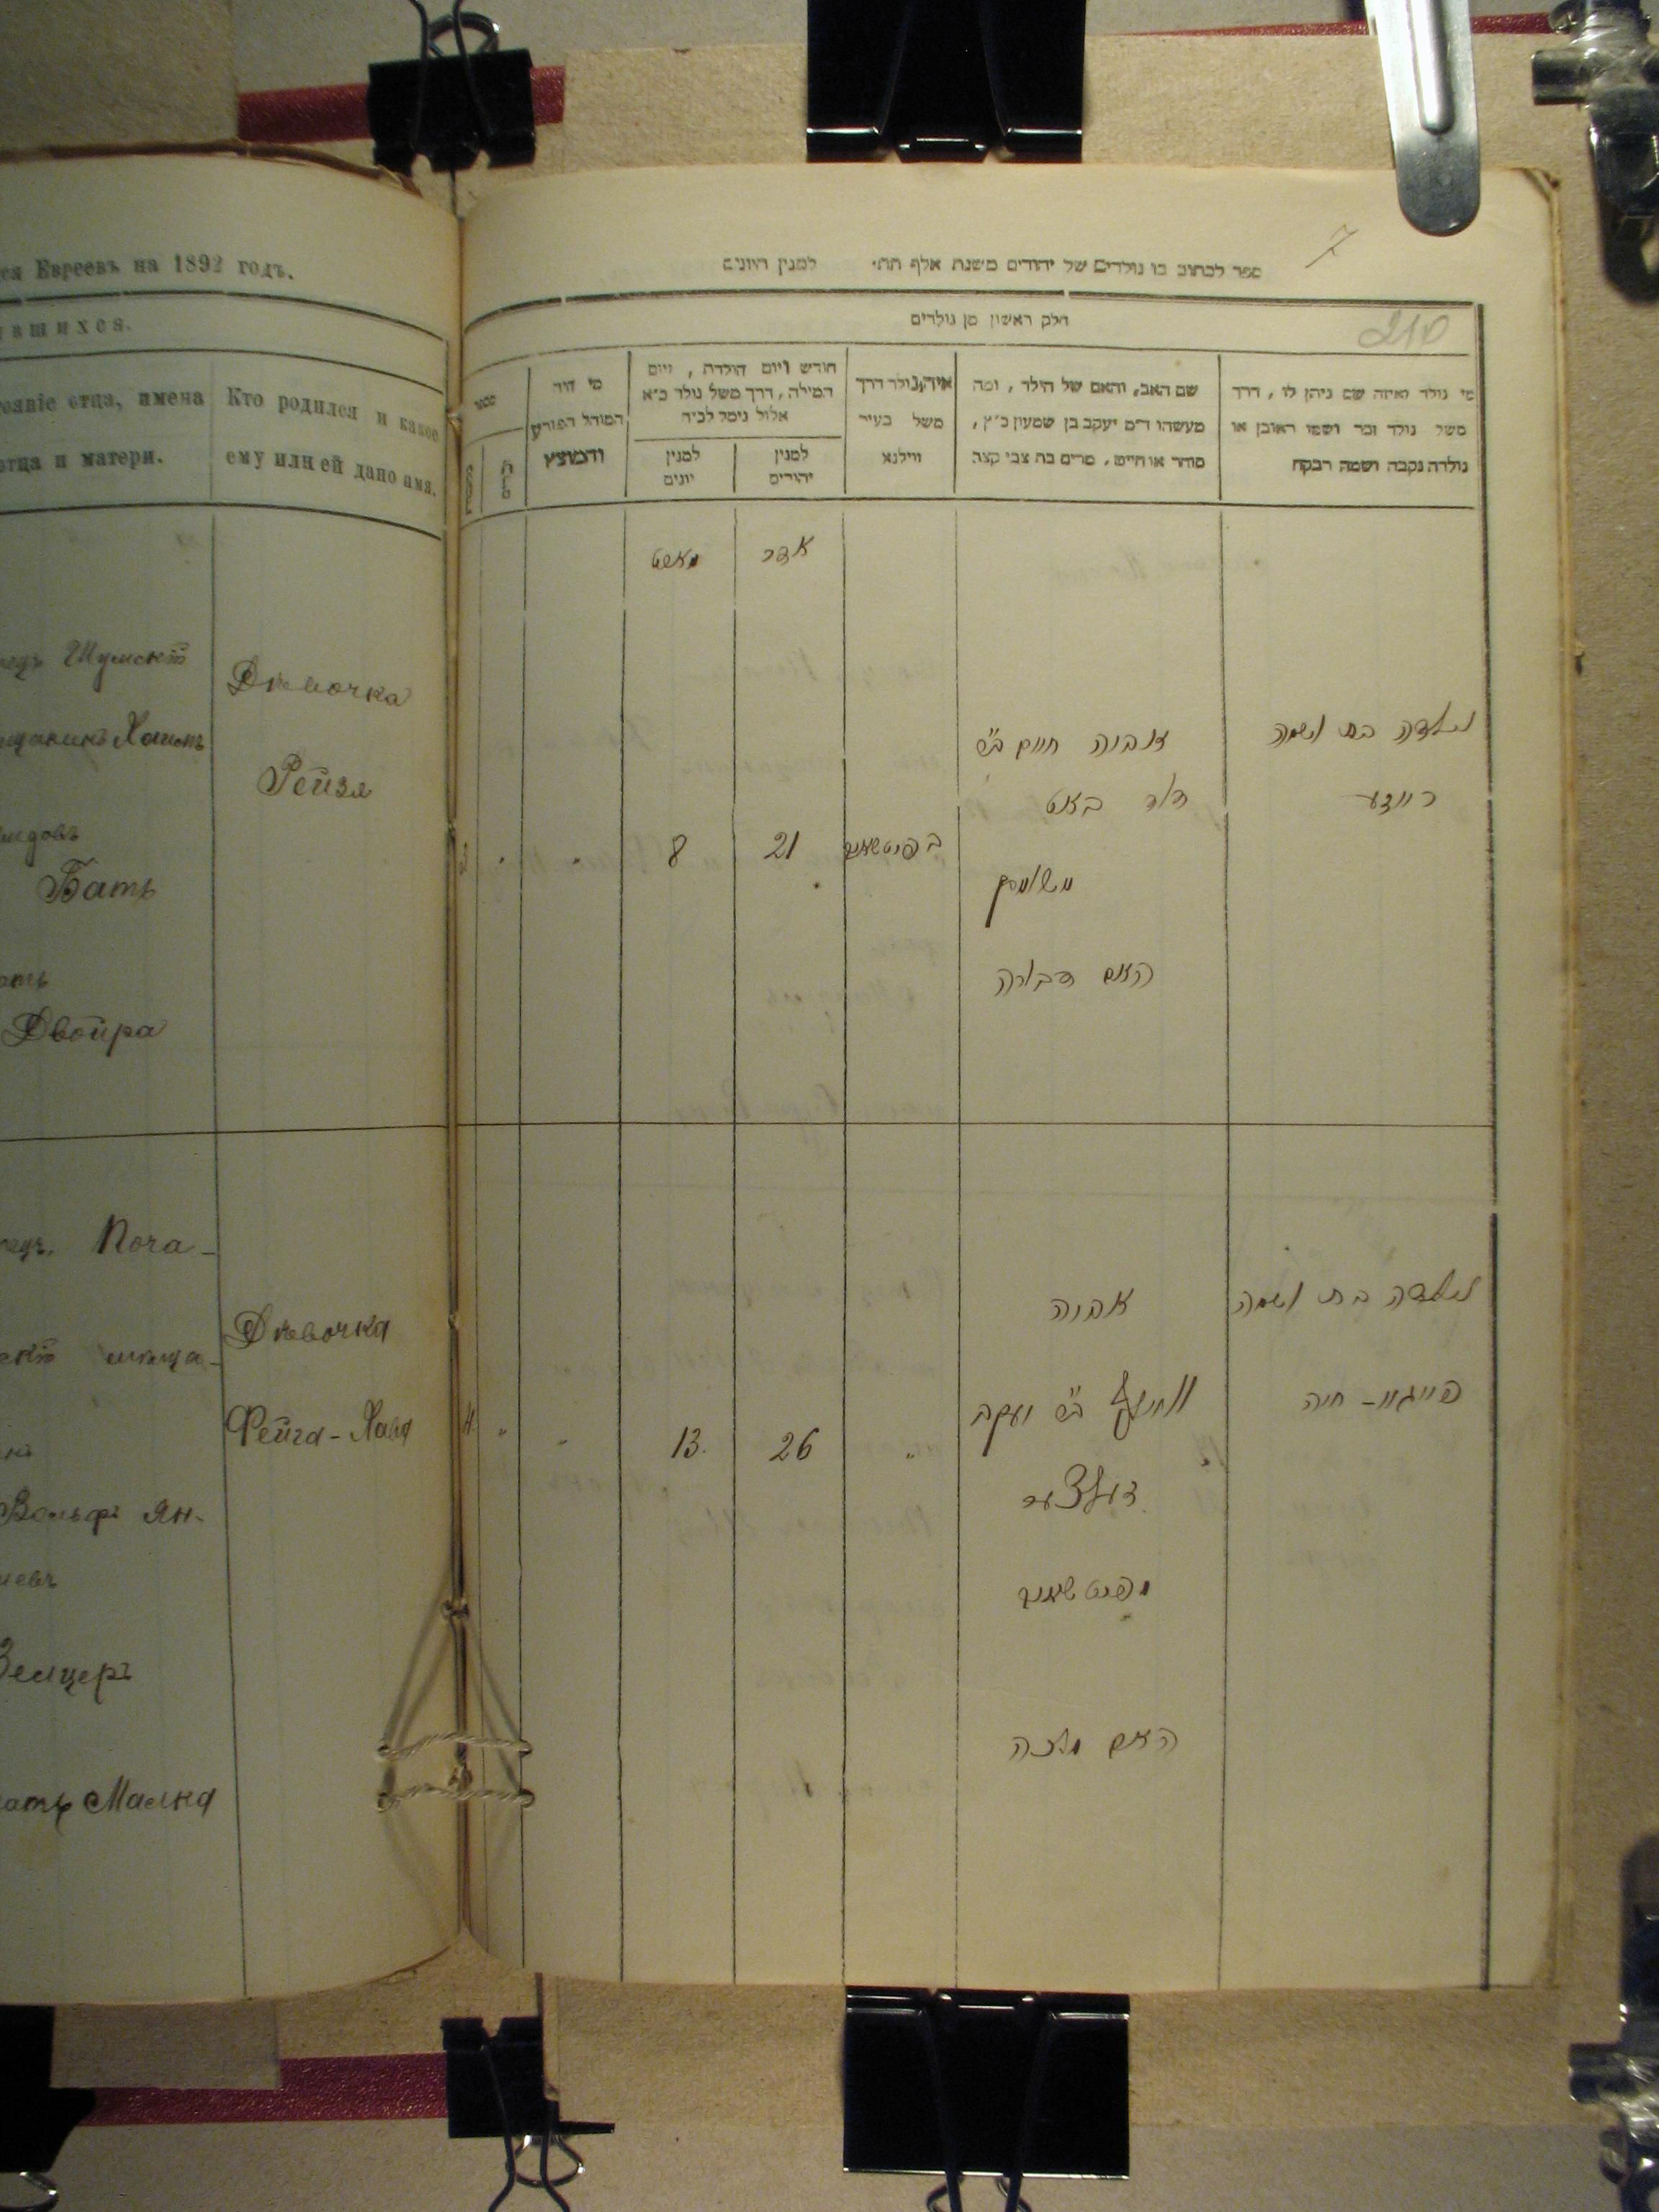 ся Евреевъ на 1892 годъ.
вшихся.
тояніе отца, имена
отца и матери.
Кто родился и какое
ему или ей дано имя.
Шумскій
Хаимъ
Бать
Двойра
Дѣвочка
Рейзя
Поча-
мѣща-
Вольфъ Ян-
Земцеръ
мать Малка
Дѣвочка
Фейга-Хава
7
ספר לכתוב בו נולדים של יהודים משנת אלף תת׳ למנין היונים
210
חלק ראשון מן נולדים
מי נולד ואיזה שם ניתן לו, דרך
משל נולד זכר ושמו ראובן או
נולדה נקבה ושמה רבקה
שם האב, והאם של הילד, ומה
מעשהו ד״מ יעקב בן שמעון כ״ץ,
סוחר או חייט, מרים בת צבי קצב
איה נולד דרך
משל בעיר
ווילנא
חודש ויום הולדת, ויום
המילה, דרך משל נולד כ״א
אלול נימל לכ״ח
למנין
יהודים
למנין
יונים
מי היה
המוהל הפורע
והמוצץ
מספר
אדר
מארט
נולדה בת ושמה
רייזע
אביה חיים ב״ר
דוד באט
משומסק
האם דבורה
21
8
נולדה בת ושמה
פייגא - חיה
אביה
וואלף ב״ר יעקב
זעלצער
מפוטשאיוב
האם מלכה
26
13.